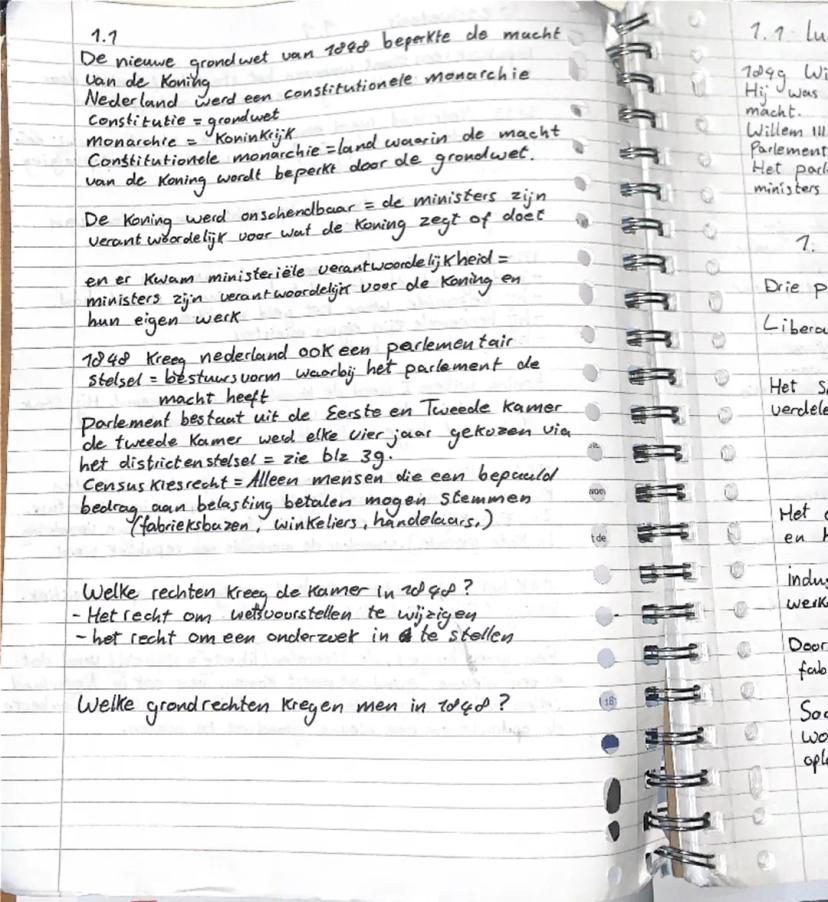 1.1
De nieuwe grondwet van 1848 beperkte de macht
van de Koning
Nederland werd een constitutionele monarchie
Constitutie = grondwet
monarchie = Koninkrijk
Constitutionele monarchie = land waarin de macht
van de Koning wordt beperkt door de grondwet.
De Koning werd onschendbaar = de ministers zijn
verantwoordelijk voor wat de Koning zegt of doet
en er Kwam ministeriële verantwoordelijkheid =
ministers zijn verantwoordelijk voor de Koning en
hun eigen werk
1848 Kreeg nederland ook een parlementair
stelsel = bestuursvorm waarbij het parlement de
macht heeft
Parlement bestaat uit de Eerste en Tweede Kamer
de tweede Kamer werd elke vier jaar gekozen via
het districtenstelsel = zie blz 39.
Census Kiesrecht = Alleen mensen die een bepaald
bedrag aan belasting betalen mogen stemmen
(fabrieksbazen, winkeliers, handelaars,)
Welke rechten Kreeg de Kamer in 1848?
- Het recht om wetsvoorstellen te wijzigen
- het recht om een onderzoek in te stellen
Welke grondrechten Kregen men in 1848?
1.1
1849 Wi
Hij was
macht.
Willem III
Parlement
Het parl
ministers
1.
Drie p
Libera
Het s
verdele
Het
en
indus
werk
Door
fab
Soc
wo
opl